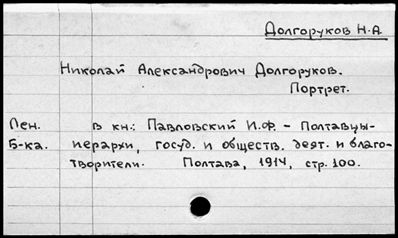 Долгоруков Н.А.
Николай Александрович Долгоруков.
Портрет.
Лен. в кн.: Павловский И.Ф. – Полтавцы-
Б-ка. иерархи, госуд. и обществ. деят. и благо-
творители. Полтава, 1914, стр. 100.